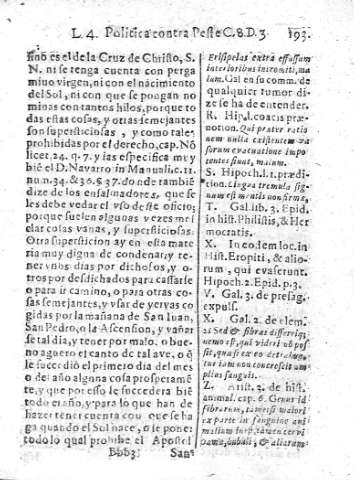 L. 4. Politica contra Peste C. 8. D. 3. 193.
sino es el de la Cruz de Christo, S.
N. ni se tenga cuenta con perga
mino virgen, ni con el nacimiento
del Sol, ni con que se pongan no
minas con tantos hilos, porque to
das estas cosas, y otras semejantes
son supersticiosas, y como tales
prohibidas por el derecho, cap. Nõ
licet. 24. q. 7. y las especifica muy
biẽ el D. Navarro in Manuali. c. 11.
num. 34. & 36. & 37. donde tambiẽ
dize de los ensalmadores, que se
les debe vedar el vso deste oficio,
porque suelen algunas vezes mez
clar cosas vanas, y supersticiosas.
Otra supersticion ay en esta mate
ria muy digna de condenar, y te-
ner vnos dias por dichosos, y o-
tros por desdichados para casarse
o para ir camino, o para otras co-
sas semejantes, y vsar de yervas co
gidas por la mañana de San Iuan,
San Pedro, o la Ascension, y vañar
se tal dia, y tener por malo, o bue-
no aguero el canto de tal ave, o q̃
le succediò el primero dia del mes
o del año alguna cosa prosperamẽ
te, y que por esso le succedera biẽ
todo el año, y para lo que han de
hazer tener cuenta con que se ha
ga quando el Sol nace, o se pone:
todo lo qual prohibe el Apostol
Bbb3 San
Erisipelas extra effussum
interioribus intromiti, ma
lum. Gal en su comm. de
qualquier tumor di-
ze se ha de entender.
R. Hip. l. coacis præ-
notion. Qui præter ratio
nem nulla existentem va
sorum evacuatione impo
tentes fiunt, malum.
S. Hipoch. l. 1. prædi-
ction. Lingua tremula sig-
num est mentis non firmæ,
T. Gal. lib. 3. Epid.
in hist. Philistis, & Her
mocratis.
X. In eodem loc. in
Hist. Eropiti, & alio-
rum, qui evaserunt.
Hipoch. 2. Epid. p. 3.
V. Gal. 3. de presag.
expuls.
X. Gal. 2. de elem.
Z. Arist. 3. de hist.
animal. cap. 6.